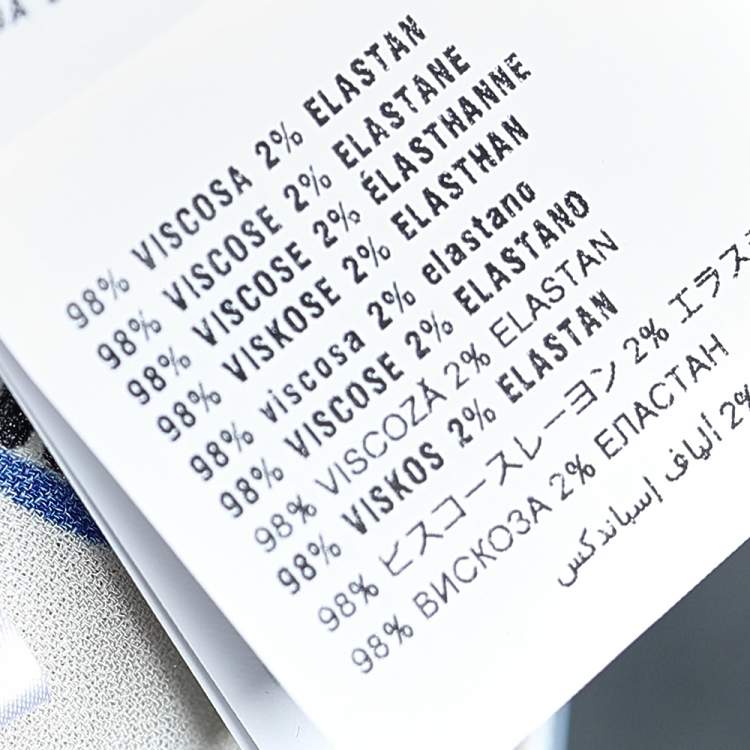 98% VISCOSA 2% ELASTAN
98% VISCOSE 2% ELASTANE
98% VISCOSE 2% ÉLASTHANNE
98% VISKOSE 2% ELASTHAN
98% viscosa 2% elastano
98% VISCOSE 2% ELASTANO
98% VISCOZĂ 2% ELASTAN
98% VISKOS 2% ELASTAN
98% ビスコースレーヨン 2% エラス
98% ВИСКОЗА 2% ЕЛАСТАН
2% ألياف إسباندكس